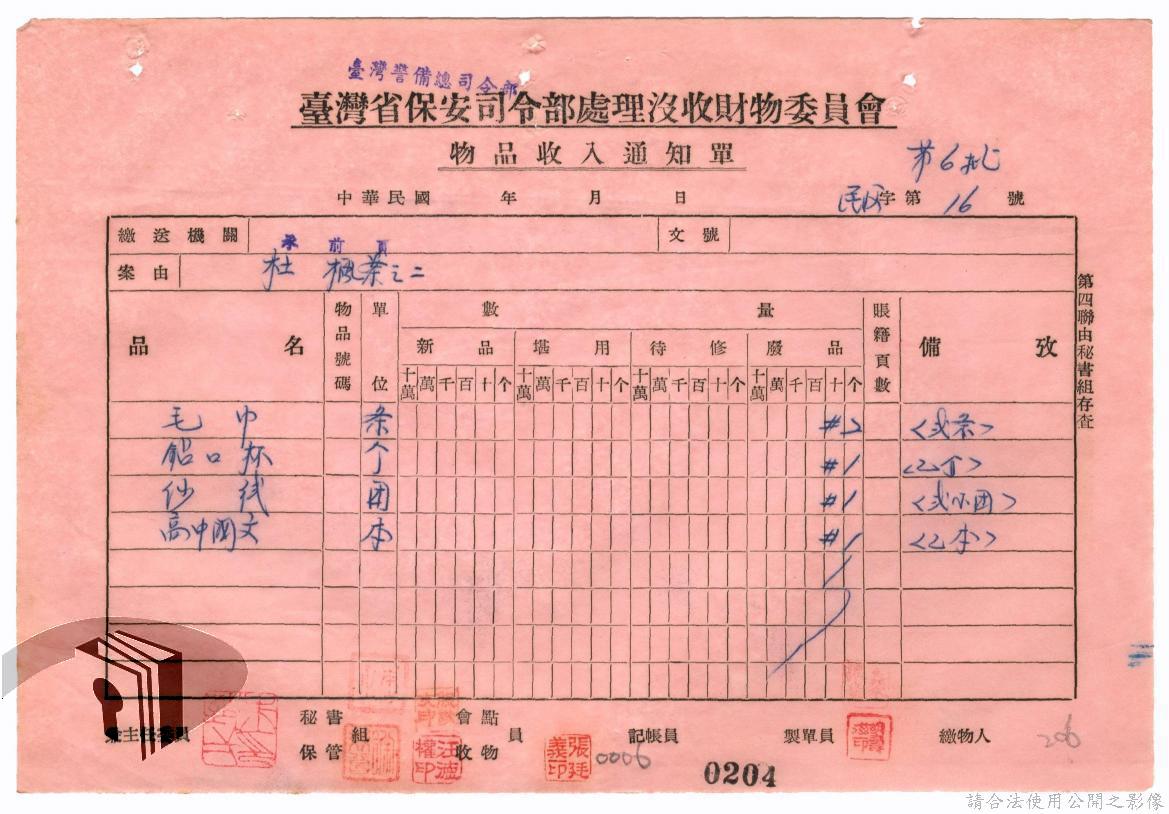 臺灣警備總司令部
臺灣省保安司令部處理沒收財物委員會
物品收入通知單
第6批
中華民國 年 月 日
字第 16 號
繳送機關 文號
承前頁
案由 杜 之二
品名 物品號碼 單位 數量 賬籍頁數 備攷
新品 堪用 待修 廢品
十萬 萬 千 百 十 个 十萬 萬 千 百 十 个 十萬 萬 千 百 十 个 十萬 萬 千 百 十 个
毛巾 条 #2 <弍条>
鋁口杯 个 #1 <乙个>
纱线 团 #1 <弍小团>
高中國文 本 #1 <乙本>
第四聯由秘書組存查
兼主任委員 秘書組 會點員 記帳員 製單員 繳物人
保管 收物
張廷義印
0006
206
0204
請合法使用公開之影像